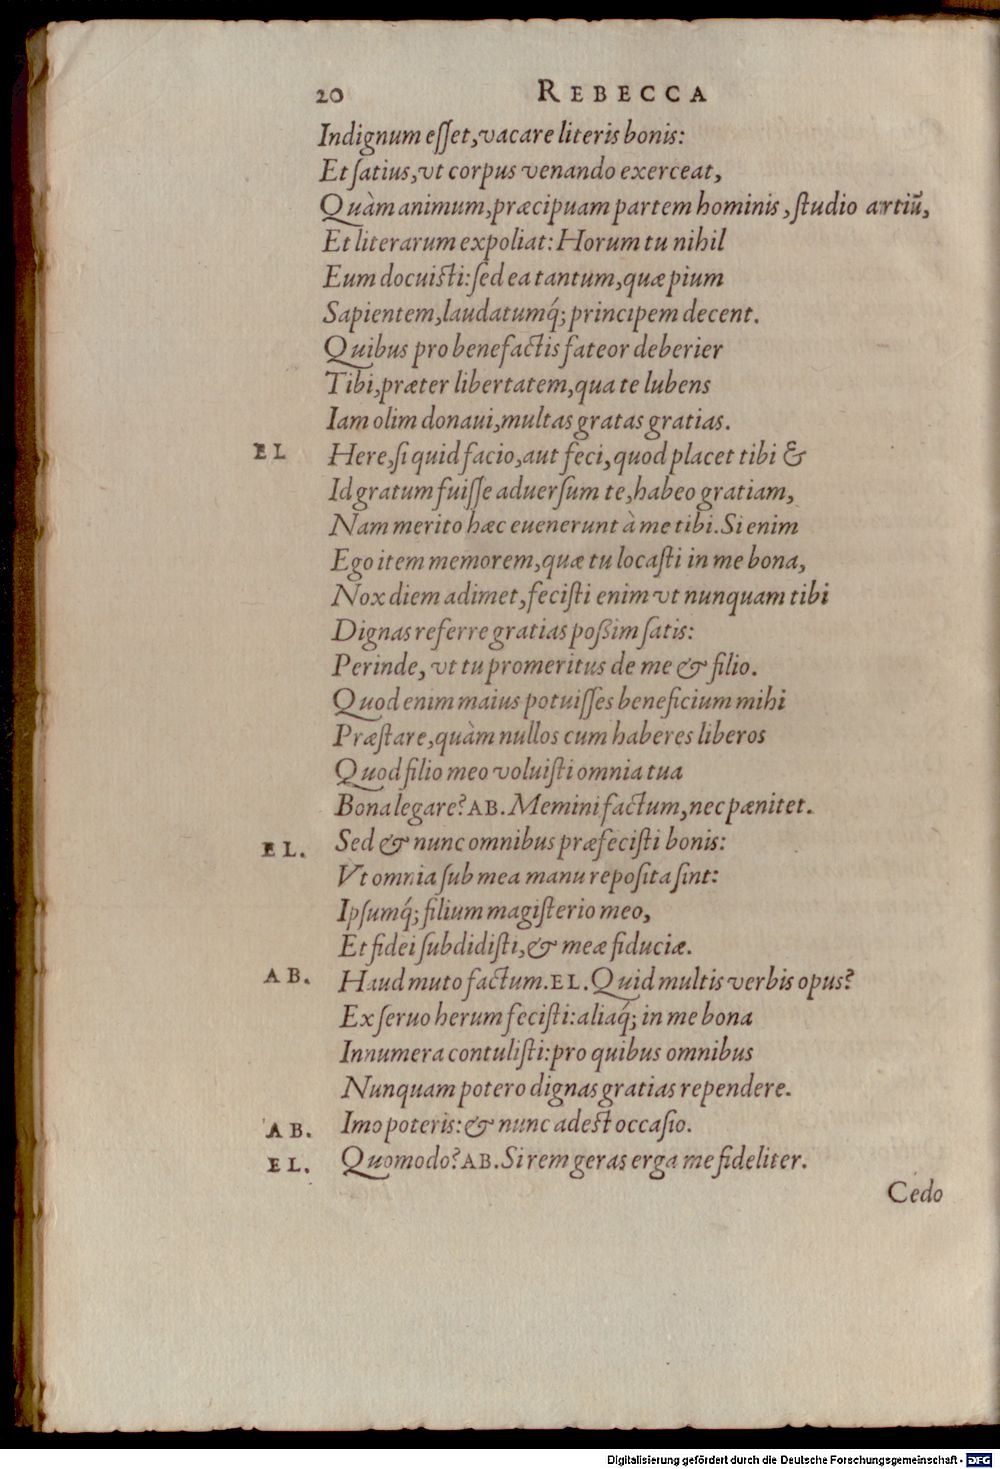 20 REBECCA
Indignum eſſet, vacare literis bonis:
Et ſatius, vt corpus venando exerceat,
Quàm animum, præcipuam partem hominis, ſtudio artiũ,
Et literarum expoliat: Horum tu nihil
Eum docuiſti: ſed ea tantum, quæ pium
Sapientem, laudatumq́; principem decent.
Quibus pro benefactis fateor deberier
Tibi, præter libertatem, qua te lubens
Iam olim donaui, multas gratas gratias.
EL Here, ſi quid facio, aut feci, quod placet tibi &
Id gratum fuiſſe aduerſum te, habeo gratiam,
Nam merito hæc euenerunt à me tibi. Si enim
Ego item memorem, quæ tu locaſti in me bona,
Nox diem adimet, feciſti enim vt nunquam tibi
Dignas referre gratias poßim ſatis:
Perinde, vt tu promeritus de me & filio.
Quod enim maius potuiſſes beneficium mihi
Præſtare, quàm nullos cum haberes liberos
Quod filio meo voluiſti omnia tua
Bona legare? AB. Memini factum, nec pænitet.
EL. Sed & nunc omnibus præfeciſti bonis:
Vt omnia ſub mea manu repoſita ſint:
Ipſumq́; filium magiſterio meo,
Et fidei ſubdidiſti, & meæ fiduciæ.
AB. Haud muto factum. EL. Quid multis verbis opus?
Ex ſeruo herum feciſti: aliaq́; in me bona
Innumera contuliſti: pro quibus omnibus
Nunquam potero dignas gratias rependere.
AB. Imo poteris: & nunc adeſt occaſio.
EL. Quomodo? AB. Si rem geras erga me fideliter.
Cedo
Digitalisierung gefördert durch die Deutsche Forschungsgemeinschaft - DFG